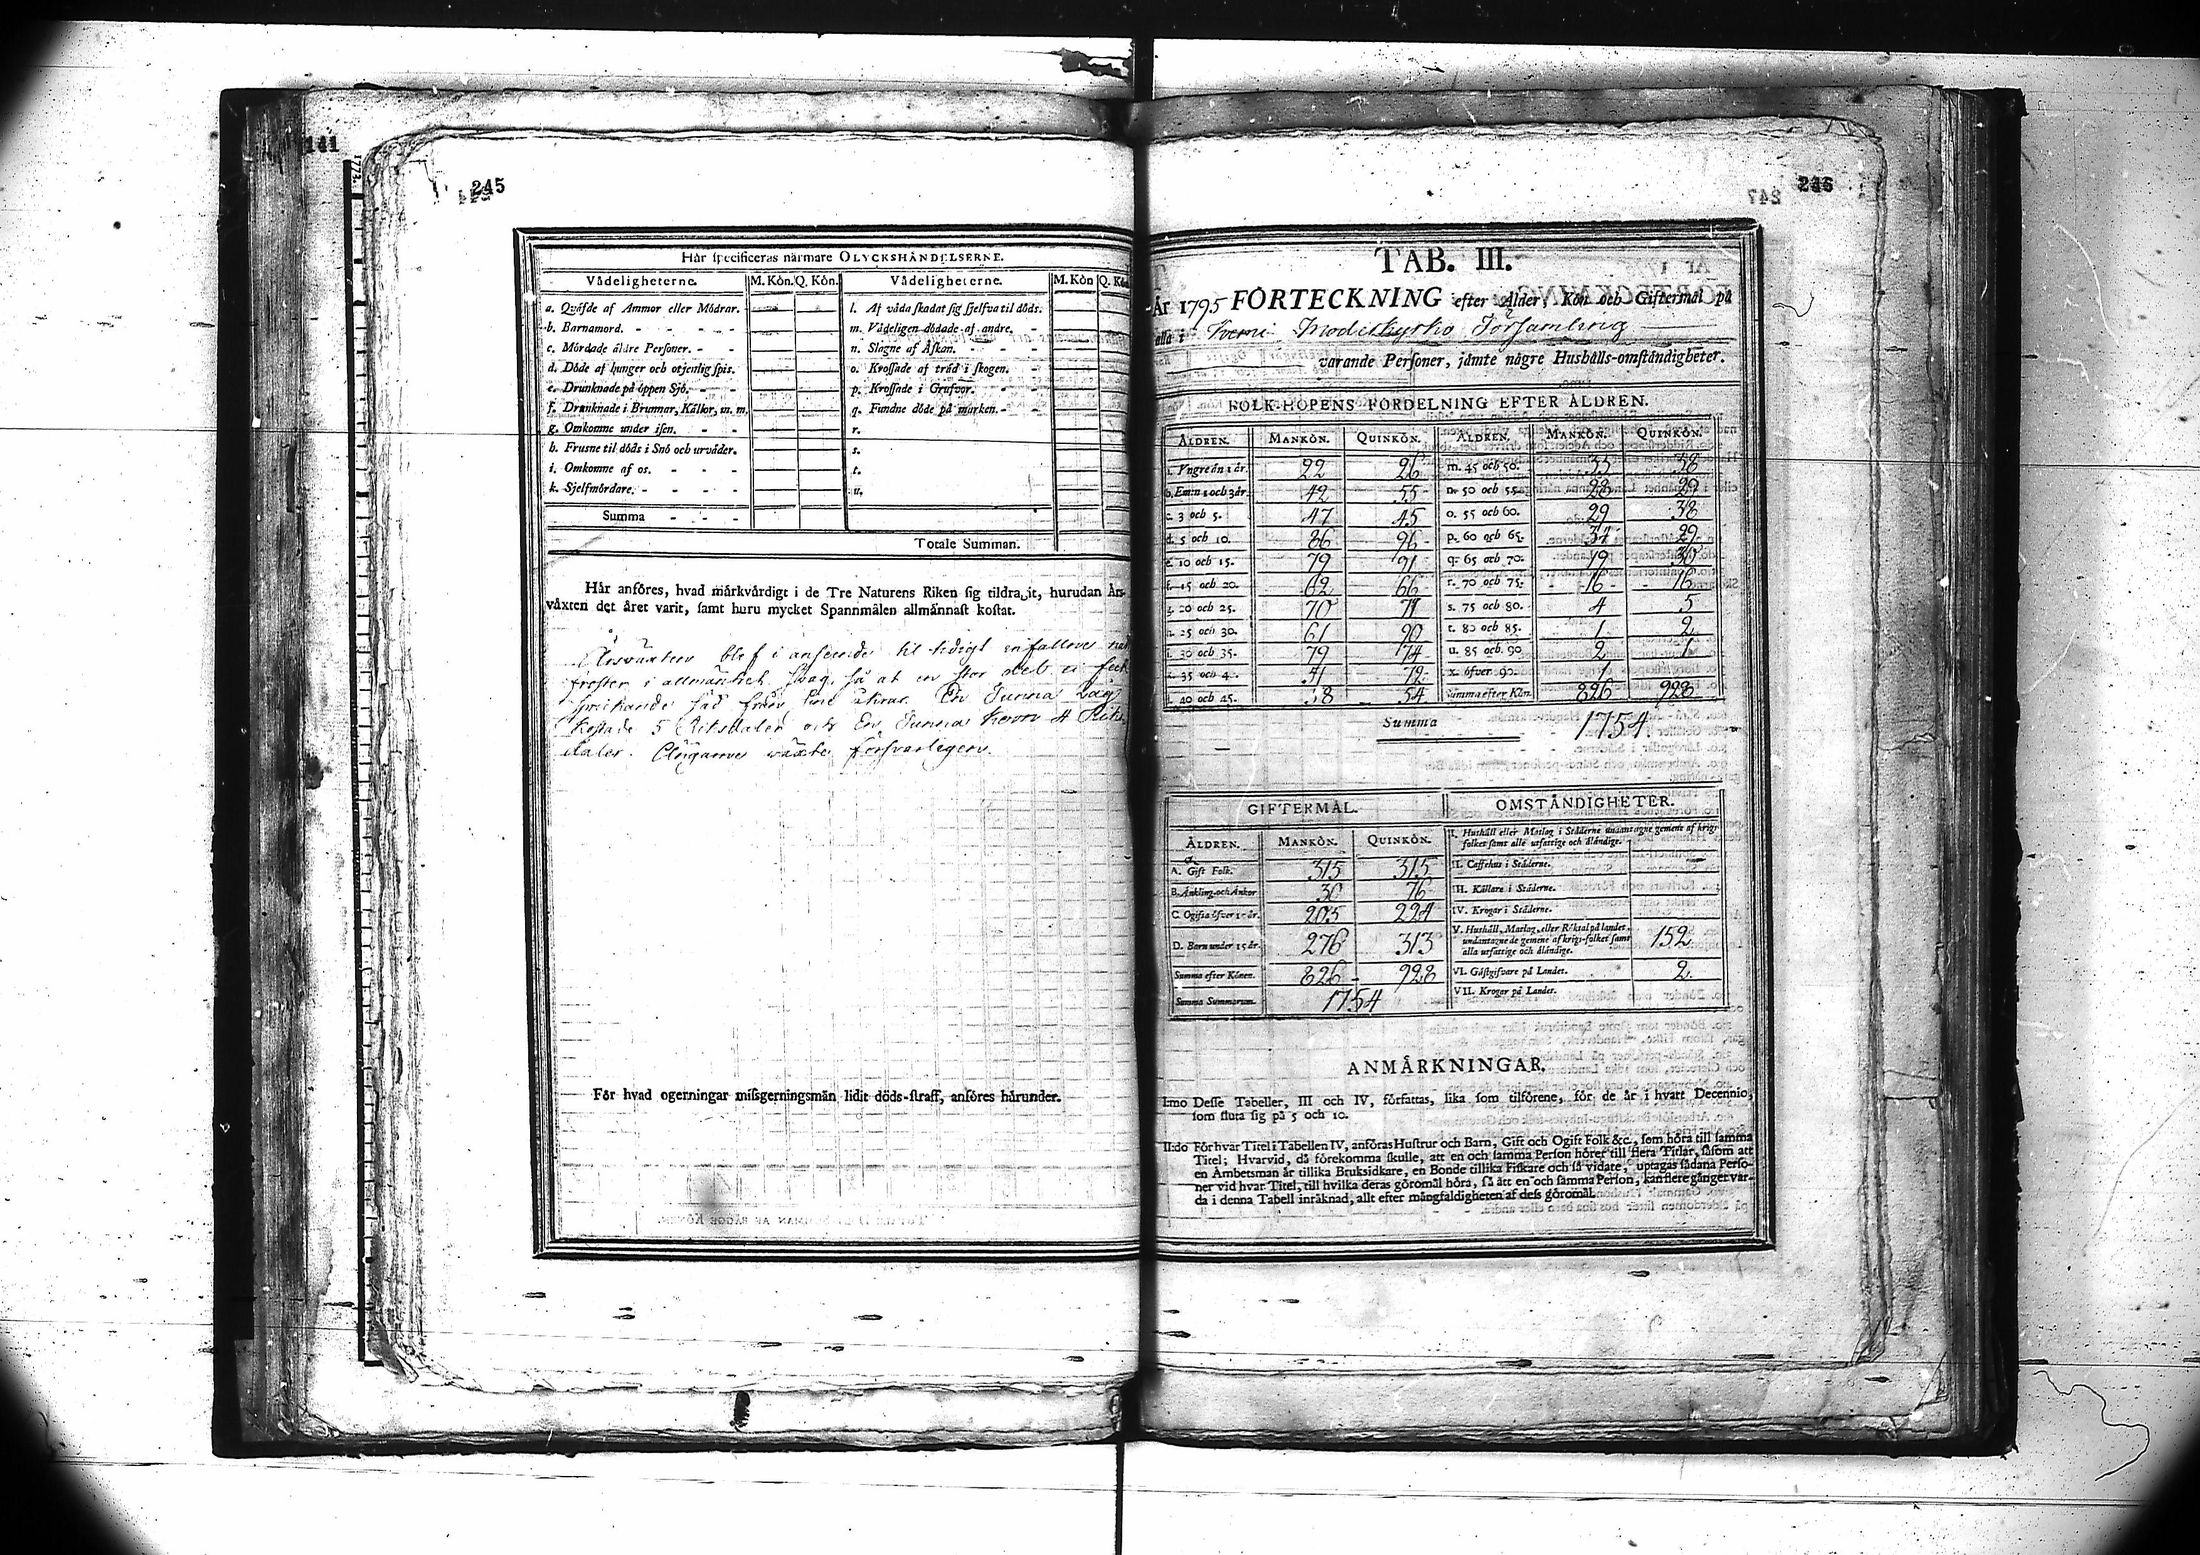 141
245
Hår specificeras nårmare OLYCKSHÅNDELSERNE.
Vådeligheterne. M. Kön. Q. Kön. Vådeligheterne. M. Kön Q. Kön
a. Qväfde af Ammor eller Mödrar. l. Af våda skadat sig sjelfva til döds.
b. Barnamord. - - - - m. Vådeligen dödade af andre. -
c. Mördade äldre Personer. - - n. Slagne af Åskan. - - -
d. Döde af hunger och otjenlig spis. o. Krossade af träd i skogen. -
e. Drunknade på öppen Sjö. - - p. Krossade i Grufvor. - -
f. Drunknade i Brunnar, Källor, m. m. q. Fundne döde på marken. - -
g. Omkomne under isen. - - r.
h. Frusne til döds i Snö och urväder. s.
i. Omkomne af os. - - - t.
k. Sjelfmördare. - - - - u.
Summa - - -
Totale Summan.
Hår anföres, hvad mårkvårdigt i de Tre Naturens Riken sig tildragit, hurudan Års-
våxten det året varit, samt huru mycket Spannmålen allmånnast kostat.
Årsväxten blef i anseende til tidigt infallne
froster i allmänhet svag, så at en stor del ei feck
säd från sina åkrar. En Tunna Råg
kostade 5 Riksdaler och En Tunna Korn 4 Riks-
daler. Ängarne växte försvarligen.
Får hvad ogerningar missgerningsmån lidit döds-straff, anföres hårunder.
246
247
TAB. III.
År 1795 FÖRTECKNING efter Ålder, Kön och Giftermål på
alla i Moderkyrko Församling
varande Personer, jåmte någre Hushålls-omståndigheter.
FOLK-HOPENS FÖRDELNING EFTER ÅLDREN.
ÅLDREN. MANKÖN. QUINKÖN. ÅLDREN. MANKÖN. QUINKÖN.
a. Yngre än 1 år. 22 26 m. 45 och 50. 35 38
b. Emn 1 och 3 år. 42 55 n. 50 och 55. 28 29
c. 3 och 5. 47 45 o. 55 och 60. 29 38
d. 5 och 10. 86 96 p. 60 och 65. 34 29
e. 10 och 15. 79 91 q. 65 och 70. 19 30
f. 15 och 20. 62 66 r. 70 och 75. 16 16
g. 20 och 25. 70 71 s. 75 och 80. 4 5
h. 25 och 30. 61 90 t. 80 och 85. 1 2
i. 30 och 35. 79 74 u. 85 och 90 2 1
k. 35 och 4. 71 72 x. öfver 90. 1
l. 40 och 45. 38 54 Summa efter Kön. 826 928
Summa 1754
GIFTERMÅL. OMSTÅNDIGHETER.
ÅLDREN. MANKÖN. QUINKÖN.
I. Hushåll eller Matlag i Städerne undantagne gemene af krigs-
folket samt alle utfattige och åländige.
A. Gift Folk. 315 315 II. Caffehus i Städerne.
B. Änkling. och Änkor 30 76 III. Källare i Städerne.
C. Ogifta öfver 15 år. 205 224 IV. Krogar i Städerne.
D. Barn under 15 år. 276 313 V. Hushåll, Matlag, eller Röktal på landet,
undantagne de gemene af krigs-folket samt
alla utfattige och åländige. 152
Summa efter Könen. 826 928 VI. Gästgifvare på Landet. 2
Summa Summarum. 1754 VII. Krogar på Landet.
ANMÅRKNINGAR.
I:mo Desse Tabeller, III och IV, författas, lika som tilförene, för de år i hvart Decennio,
som sluta sig på 5 och 10.
II:do För hvar Titel i Tabellen IV, anföras Hustrur och Barn, Gift och Ogift Folk &c., som höra till samma
Titel; Hvarvid, då förekomma skulle, att en och samma Person hörer till flera Titlar, såsom att
en Åmbetsman är tillika Bruksidkare, en Bonde tillika Fiskare och så vidare, uptagas sådana Perso-
ner vid hvar Titel, till hvilka deras göromål höra, så ått en och samma Person, kan flere gånger var-
da i denna Tabell inräknad, allt efter mångfaldigheten af dess göromål.